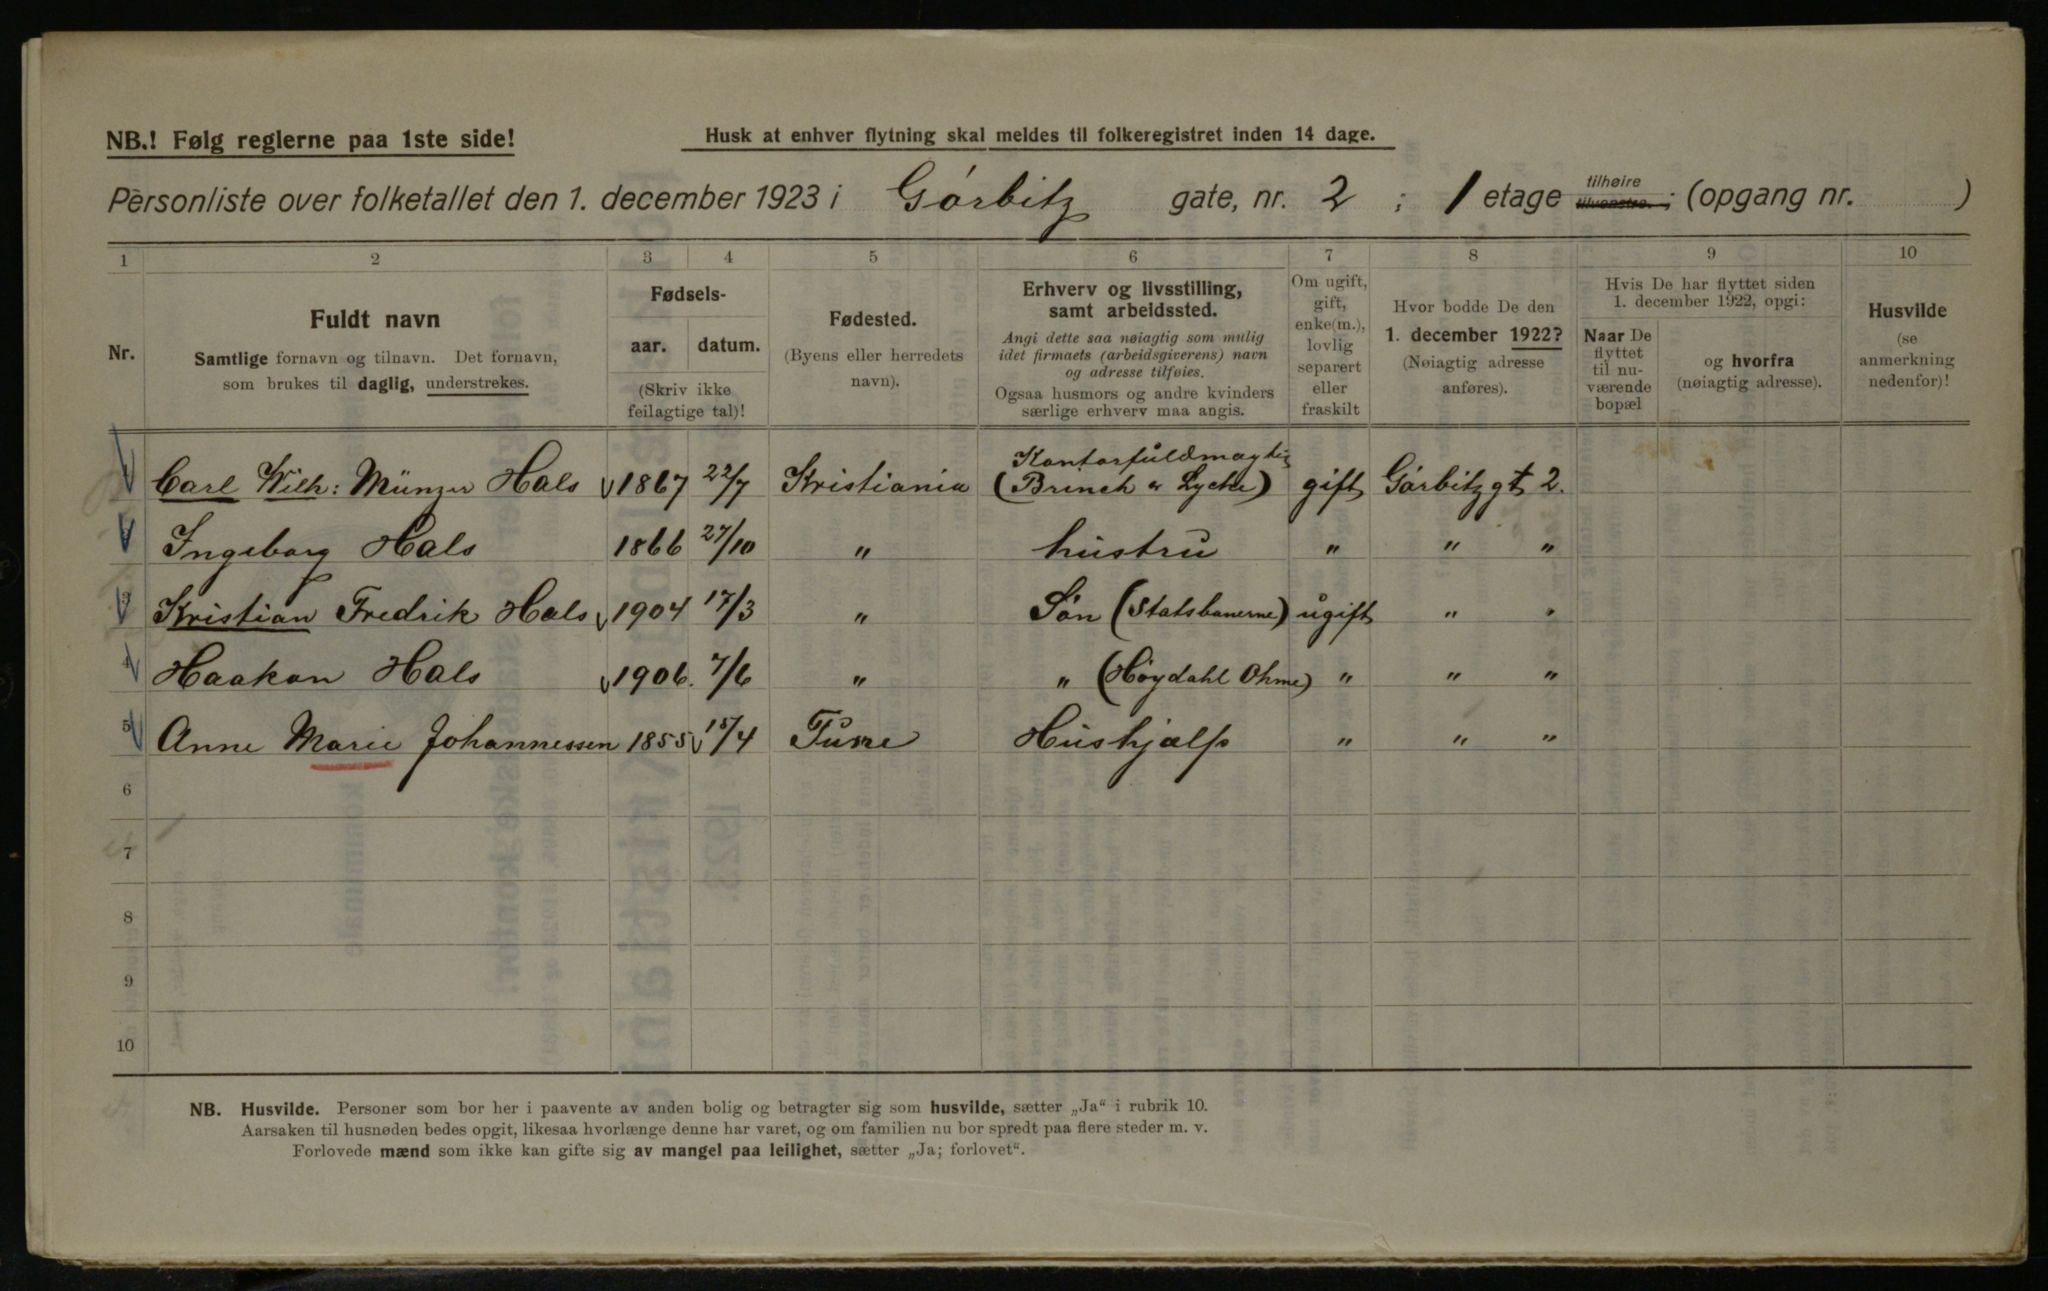 NB.! Følg reglerne paa 1ste side!
Husk at enhver flytning skal meldes til folkeregistret inden 14 dage.
Personliste over folketallet den 1. december 1923 i Górbitz gate, nr. 2 ; 1 etage tilhøire tilvenstre. ; (opgang nr. )
1 2 3 4 5 6 7 8 9 10
Nr.
Fuldt navn
Samtlige fornavn og tilnavn. Det fornavn,
som brukes til daglig, understrekes.
Fødsels-
aar. datum.
(Skriv ikke
feilagtige tal)!
Fødested.
(Byens eller herredets
navn).
Erhverv og livsstilling,
samt arbeidssted.
Angi dette saa nøiagtig som mulig
idet firmaets (arbeidsgiverens) navn
og adresse tilføies.
Ogsaa husmors og andre kvinders
særlige erhverv maa angis.
Om ugift,
gift,
enke(m.),
lovlig
separert
eller
fraskilt
Hvor bodde De den
1. december 1922?
(Nøiagtig adresse
anføres).
Hvis De har flyttet siden
1. december 1922, opgi:
Naar De
flyttet
til nu-
værende
bopæl
og hvorfra
(nøiagtig adresse).
Husvilde
(se
anmerkning
nedenfor)!
1 Carl Wilh: Münzer Hals 1867 22/7 Kristiania Kontorfuldmægtig (Brinch & Lycke) gift Górbitzgt 2.
2 Ingeborg Hals 1866 27/10 " hustru " " "
3 Kristian Fredrik Hals 1904 17/3 " Søn (Statsbanerne) ugift " "
4 Haakon Hals 1906. 7/6 " " (Høydahl Ohme) " " "
5 Anne Marie Johannessen 1855 15/4 Furre Hushjælp " " "
6
7
8
9
10
NB. Husvilde. Personer som bor her i paavente av anden bolig og betragter sig som husvilde, sætter „Ja“ i rubrik 10.
Aarsaken til husnøden bedes opgit, likesaa hvorlænge denne har varet, og om familien nu bor spredt paa flere steder m. v.
Forlovede mænd som ikke kan gifte sig av mangel paa leilighet, sætter „Ja; forlovet“.